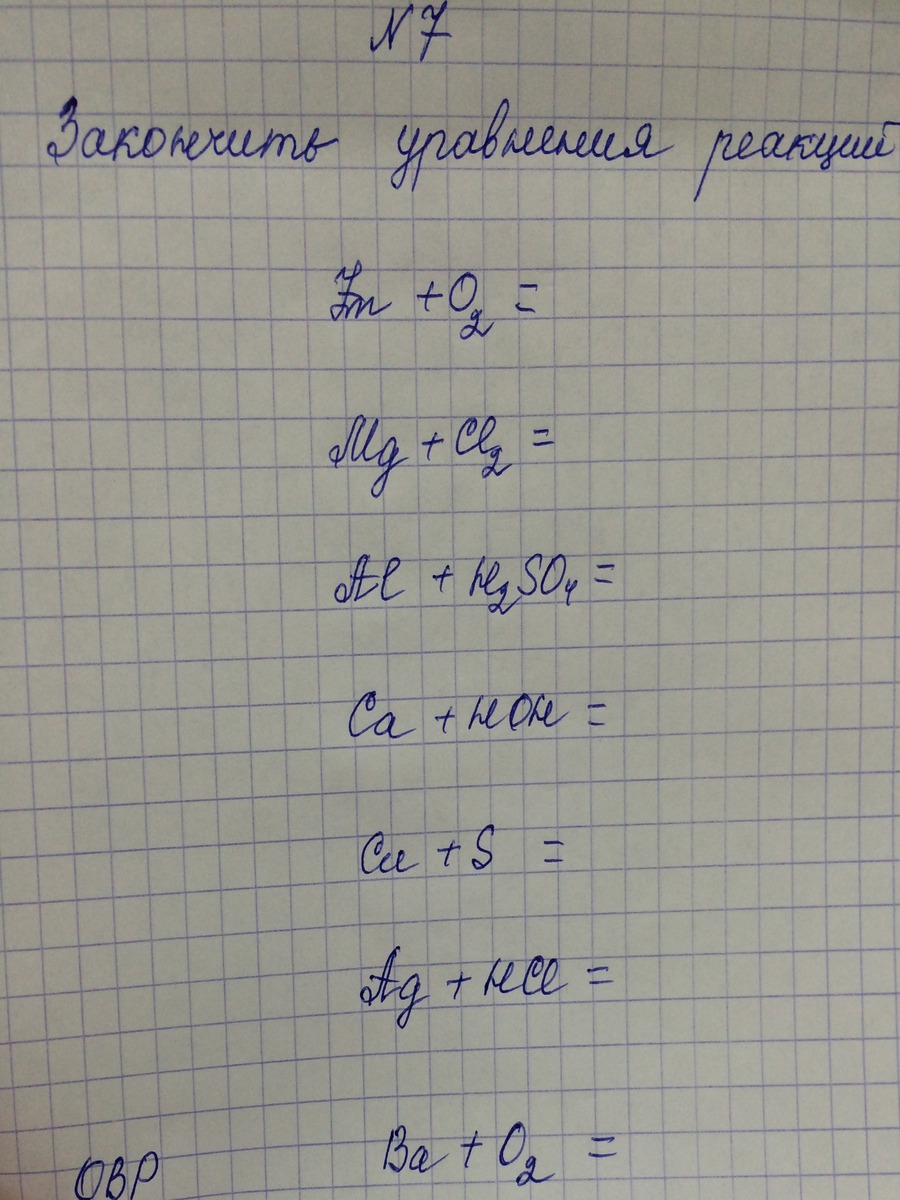 N7
Закончить уравнения реакций
Zn + O₂ =
Mg + Cl₂ =
Al + H₂SO₄ =
Ca + HOH =
Cu + S =
Ag + HCl =
Ba + O₂ =
ОВР